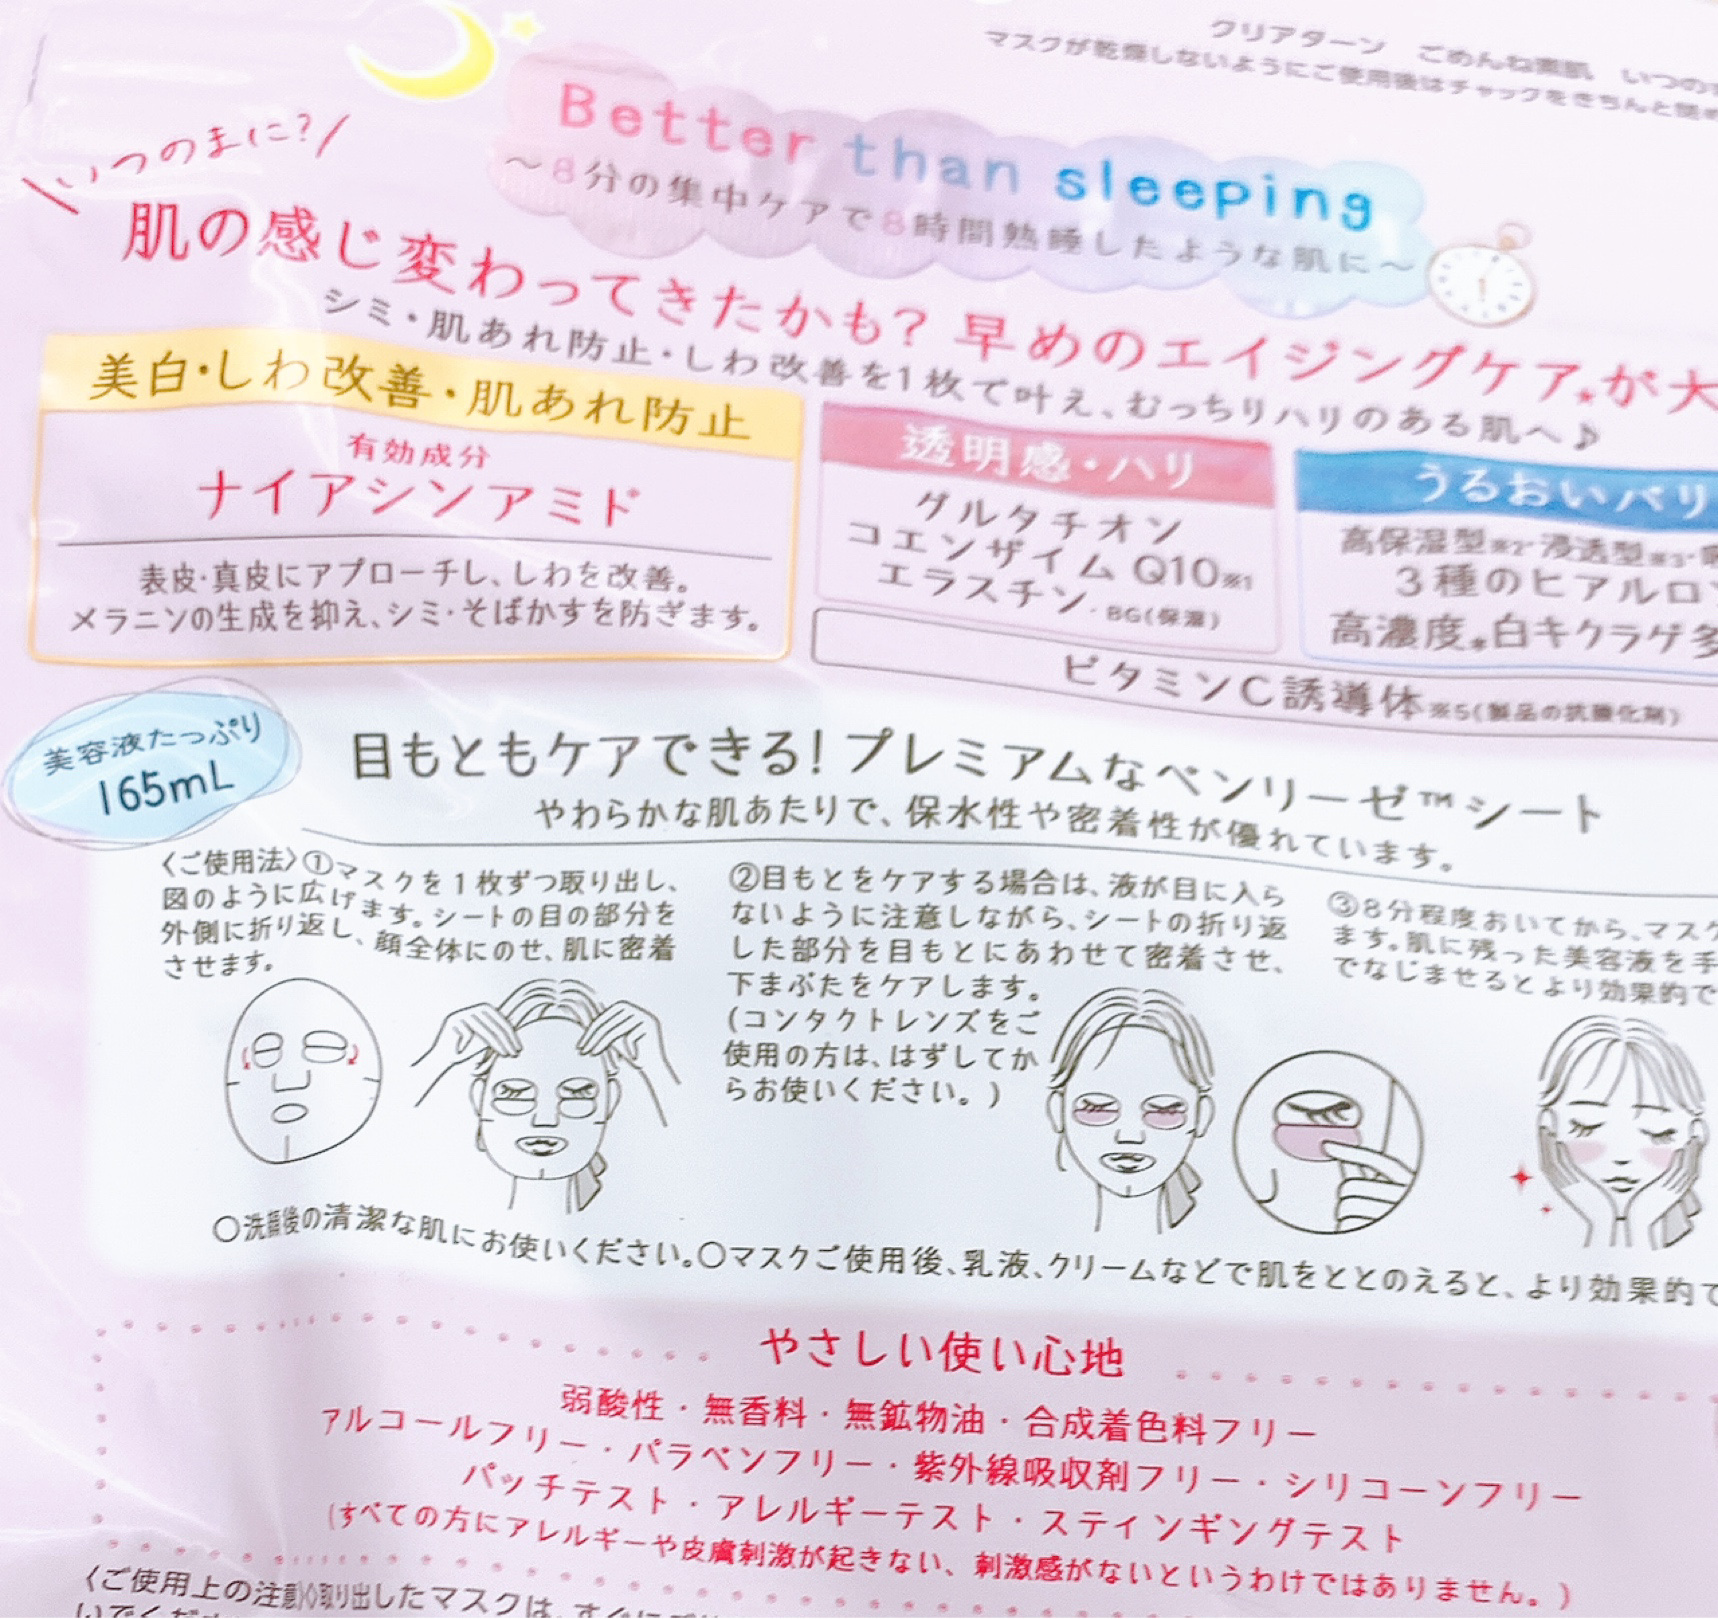 クリアターン ごめんね素肌 いつの
マスクが乾燥しないようにご使用後はチャックをきちんと
Better than sleeping
～8分の集中ケアで8時間熟睡したような肌に～
いつのまに?
肌の感じ変わってきたかも? 早めのエイジングケア*が大
シミ・肌あれ防止・しわ改善を1枚で叶え、むっちりハリのある肌へ♪
美白・しわ改善・肌あれ防止
有効成分
ナイアシンアミド
表皮・真皮にアプローチし、しわを改善。
メラニンの生成を抑え、シミ・そばかすを防ぎます。
透明感・ハリ
グルタチオン
コエンザイムQ10※1
エラスチン・BG(保湿)
うるおいバリ
高保湿型※2・浸透型※3・
3種のヒアルロ
高濃度*白キクラゲ多
ビタミンC誘導体※5(製品の抗酸化剤)
美容液たっぷり
165mL
目もともケアできる! プレミアムなベンリーゼ™シート
やわらかな肌あたりで、保水性や密着性が優れています。
〈ご使用法〉①マスクを1枚ずつ取り出し、
図のように広げます。シートの目の部分を
外側に折り返し、顔全体にのせ、肌に密着
させます。
②目もとをケアする場合は、液が目に入ら
ないように注意しながら、シートの折り返
した部分を目もとにあわせて密着させ、
下まぶたをケアします。
(コンタクトレンズをご
使用の方は、はずしてか
らお使いください。)
③8分程度おいてから、マスク
ます。肌に残った美容液を手
でなじませるとより効果的で
○洗顔後の清潔な肌にお使いください。○マスクご使用後、乳液、クリームなどで肌をととのえると、より効果的で
やさしい使い心地
弱酸性・無香料・無鉱物油・合成着色料フリー
アルコールフリー・パラベンフリー・紫外線吸収剤フリー・シリコーンフリー
パッチテスト・アレルギーテスト・スティンギングテスト
(すべての方にアレルギーや皮膚刺激が起きない、刺激感がないというわけではありません。)
〈ご使用上の注意〉◇取り出したマスクは、すぐに